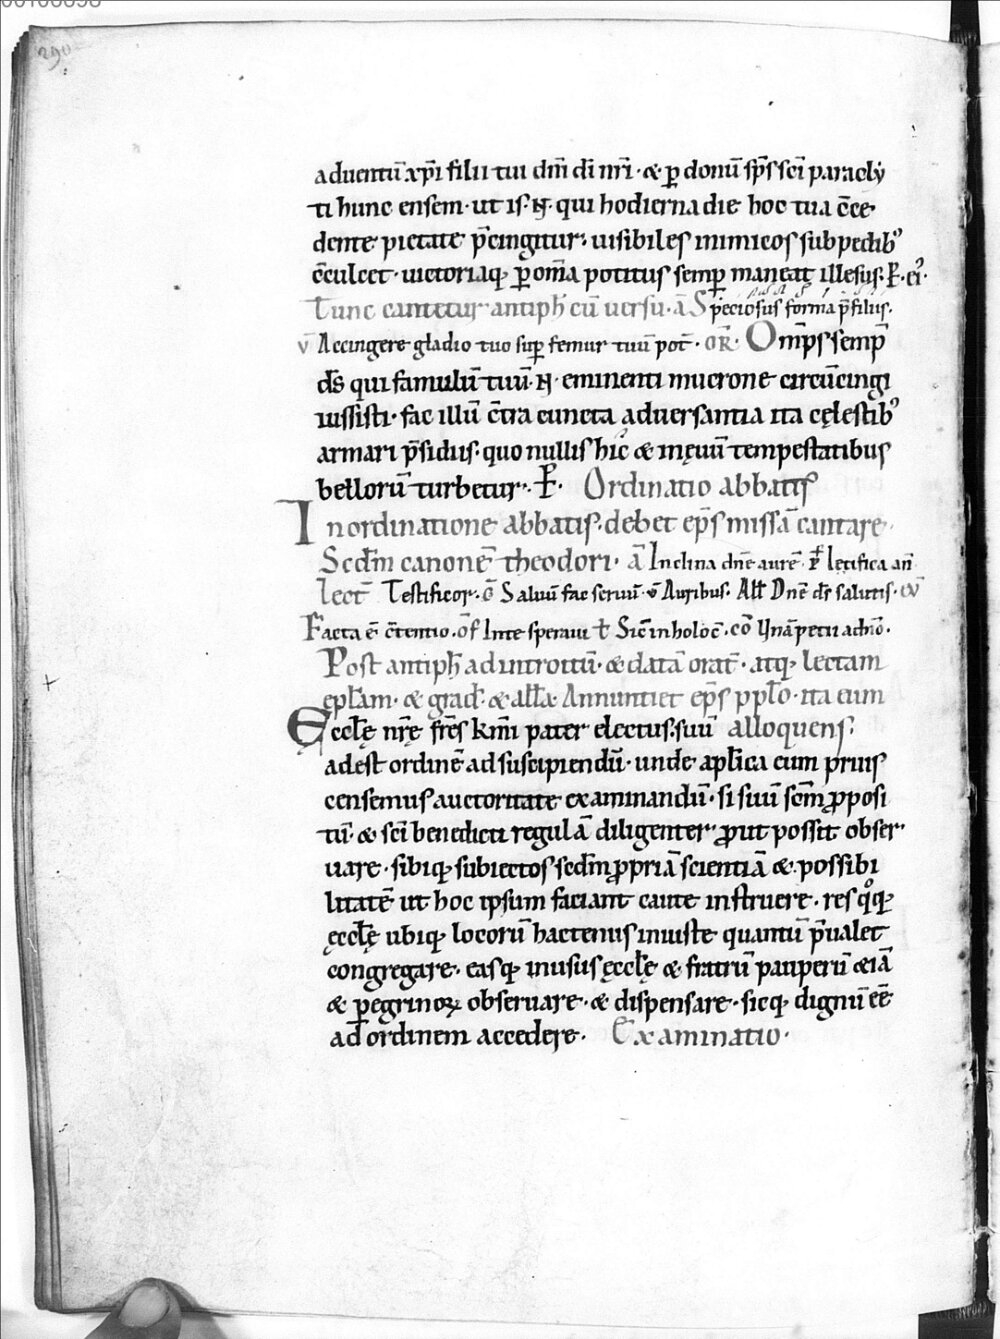 290
aduentū xp̄i filii tui dn̄i di nr̄i · & ꝑ donū sp̄s sc̄i paracly
ti hunc ensem · ut is · N̄ · qui hodierna die hoc tua c̄ce
dente pietate p̄cingitur · uisibiles inimicos sub pedib᾽
c̄culcet · uictoriaq; ꝑ om̄a potitus semꝑ maneat illesus · P̄ · ei᾽ ·
Tunc cantetur antiph̄ cū uersu · ā Speciosus forma p̄ filiis ·
v̄ Accingere gladio tuo suꝑ femur tuū pot̄ · OR̄ · Om̄ps semp̄
ds̄ qui famulū tuū · N̄ · eminenti mucrone circūcingi
iussisti · fac illū c̄tra cuncta aduersantia ita cęlestib᾽
armari p̄sidiis · quo nullis hic & in ęuū tempestatibus
bellorū turbetur · P̄ · Ordinatio abbatis
In ordinatione abbatis · debet ep̄s missā cantare ·
Scdm̄ canonē theodori · ā Inclina dn̄e aurē · P̄s Lętifica an̄
Lect̄ Testificor · ō Saluū fac seruū · v̄ Auribus · All̄ Dn̄e ds̄ salutis · eū
Facta ē c̄tentio · of̄ In te speraui t̄ Sic̄ in holoc̄ · cō Unā petii a dn̄o ·
Post antiph̄ ad introitū · & datā orat̄ · atq; lectam
epl̄am · & grad̄ · & all̄a · Annuntiet ep̄s ppl̄o · ita cum
Eccl̄ę nr̄ę fr̄es km̄i pater electus · suū alloquens ·
adest ordinē ad suscipiendū · unde apl̄ica eum prius
censemus auctoritate examinandū · si suū sc̄m ꝓposi
tū · & sc̄i benedicti regulā diligenter ꝓut possit obser
uare · sibiq; subiectos scdm̄ ꝓpriā scientiā & possibi
litatē ut hoc ipsum faciant caute instruere · res qͦq;
ęccl̄ę ubiq; locorū hactenus iniuste quantū p̄ualet
congregare · easq; in usus ęccl̄ę & fratrū pauperū &iā
& ꝑegrinoꝝ obseruare · & dispensare · sicq; dignū eē
ad ordinem accedere · Examinatio ·